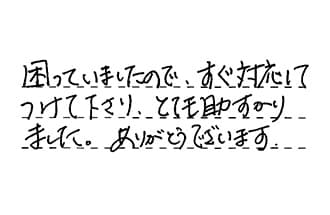 困っていましたので、すぐ対応して
つけて下さり、とても助すかり
ました。ありがとうございます.